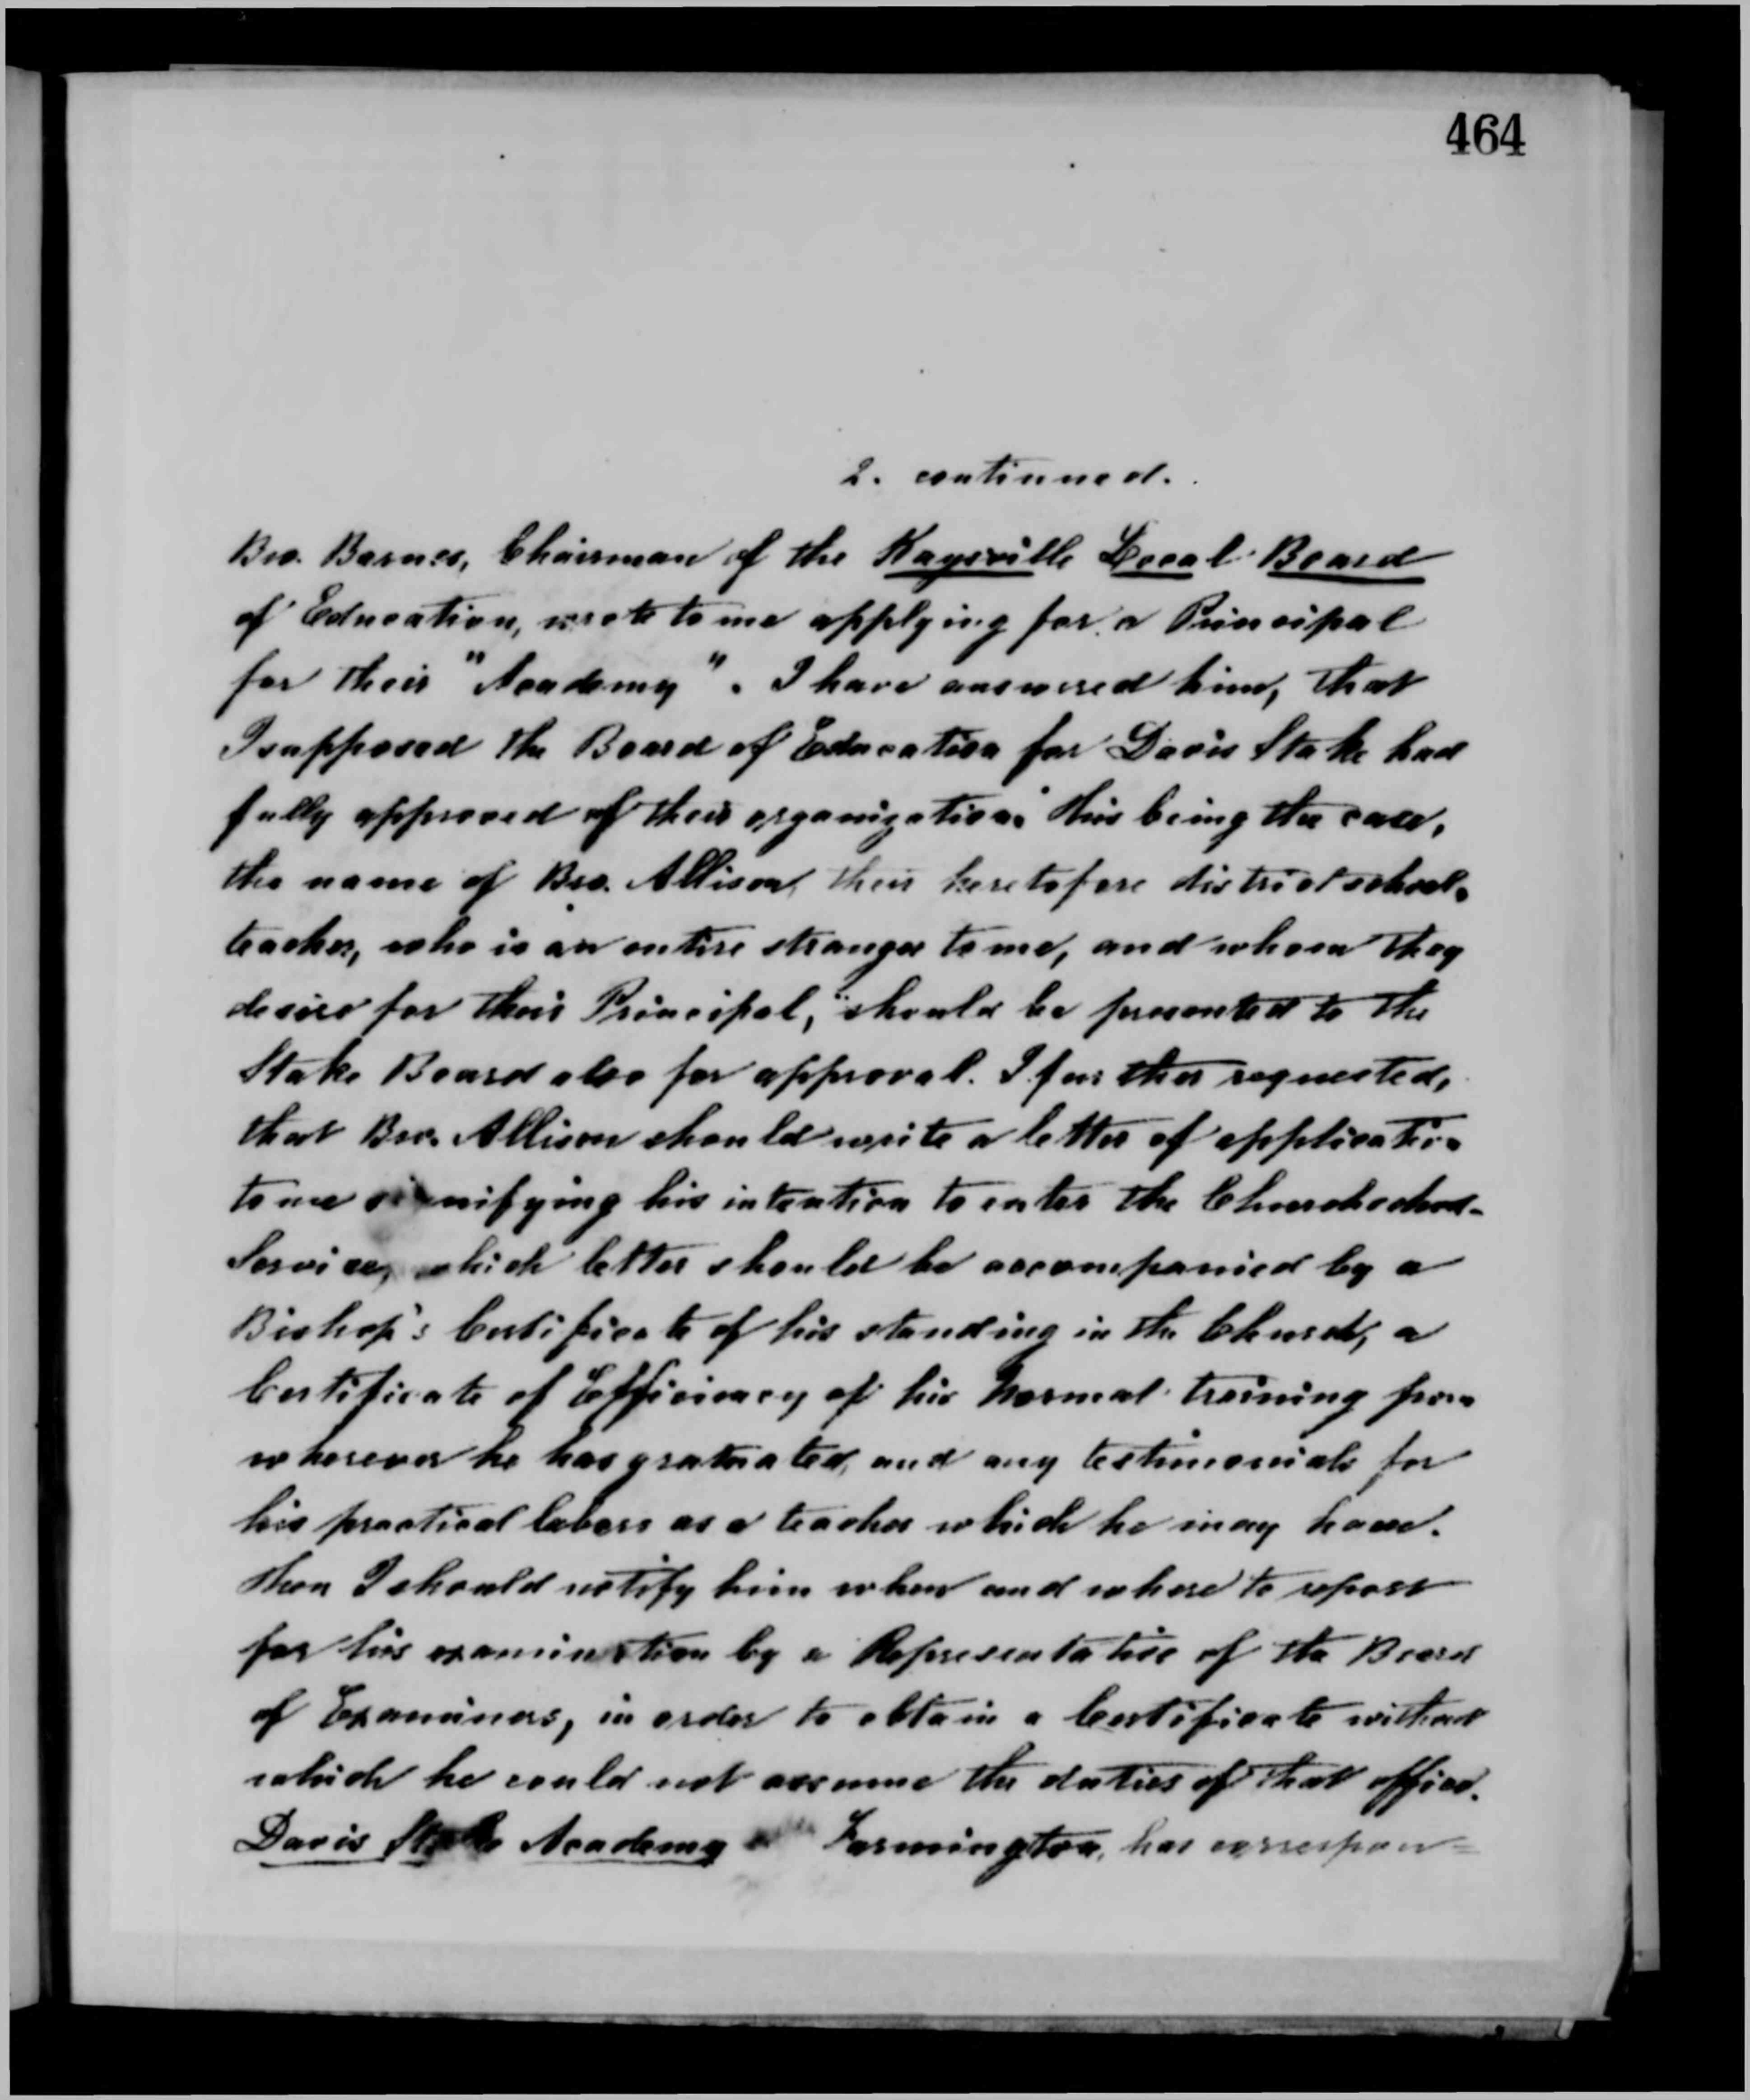 464
2. continued.
Bro. Barnes, Chairman of the Kaysville Local Board
of Education, wrote to me applying for a Principal
for their "Academy". I have answered him, that
I supposed the Board of Education for Davis Stake had
fully approved of their organization. This being the case,
the name of Bro. Allison, their heretofore district school-
teacher, who is an entire stranger to me, and whom they
desire for their Principal, should be presented to the
Stake Board also for approval. I further requested,
that Bro. Allison should write a letter of application
to me signifying his intention to enter the Churchschool-
Service, which letter should be accompanied by a
Bishop's Certificate of his standing in the Church, a
Certificate of Efficiency of his Normal training from
wherever he has gratuated, and any testimonials for
his practical labors as a teacher which he may have.
Then I should notify him when and where to report
for his examination by a Representative of the Board
of Examiners, in order to obtain a Certificate without
which he could not assume the duties of that office.
Davis Stake Academy Farmington, has correspon=